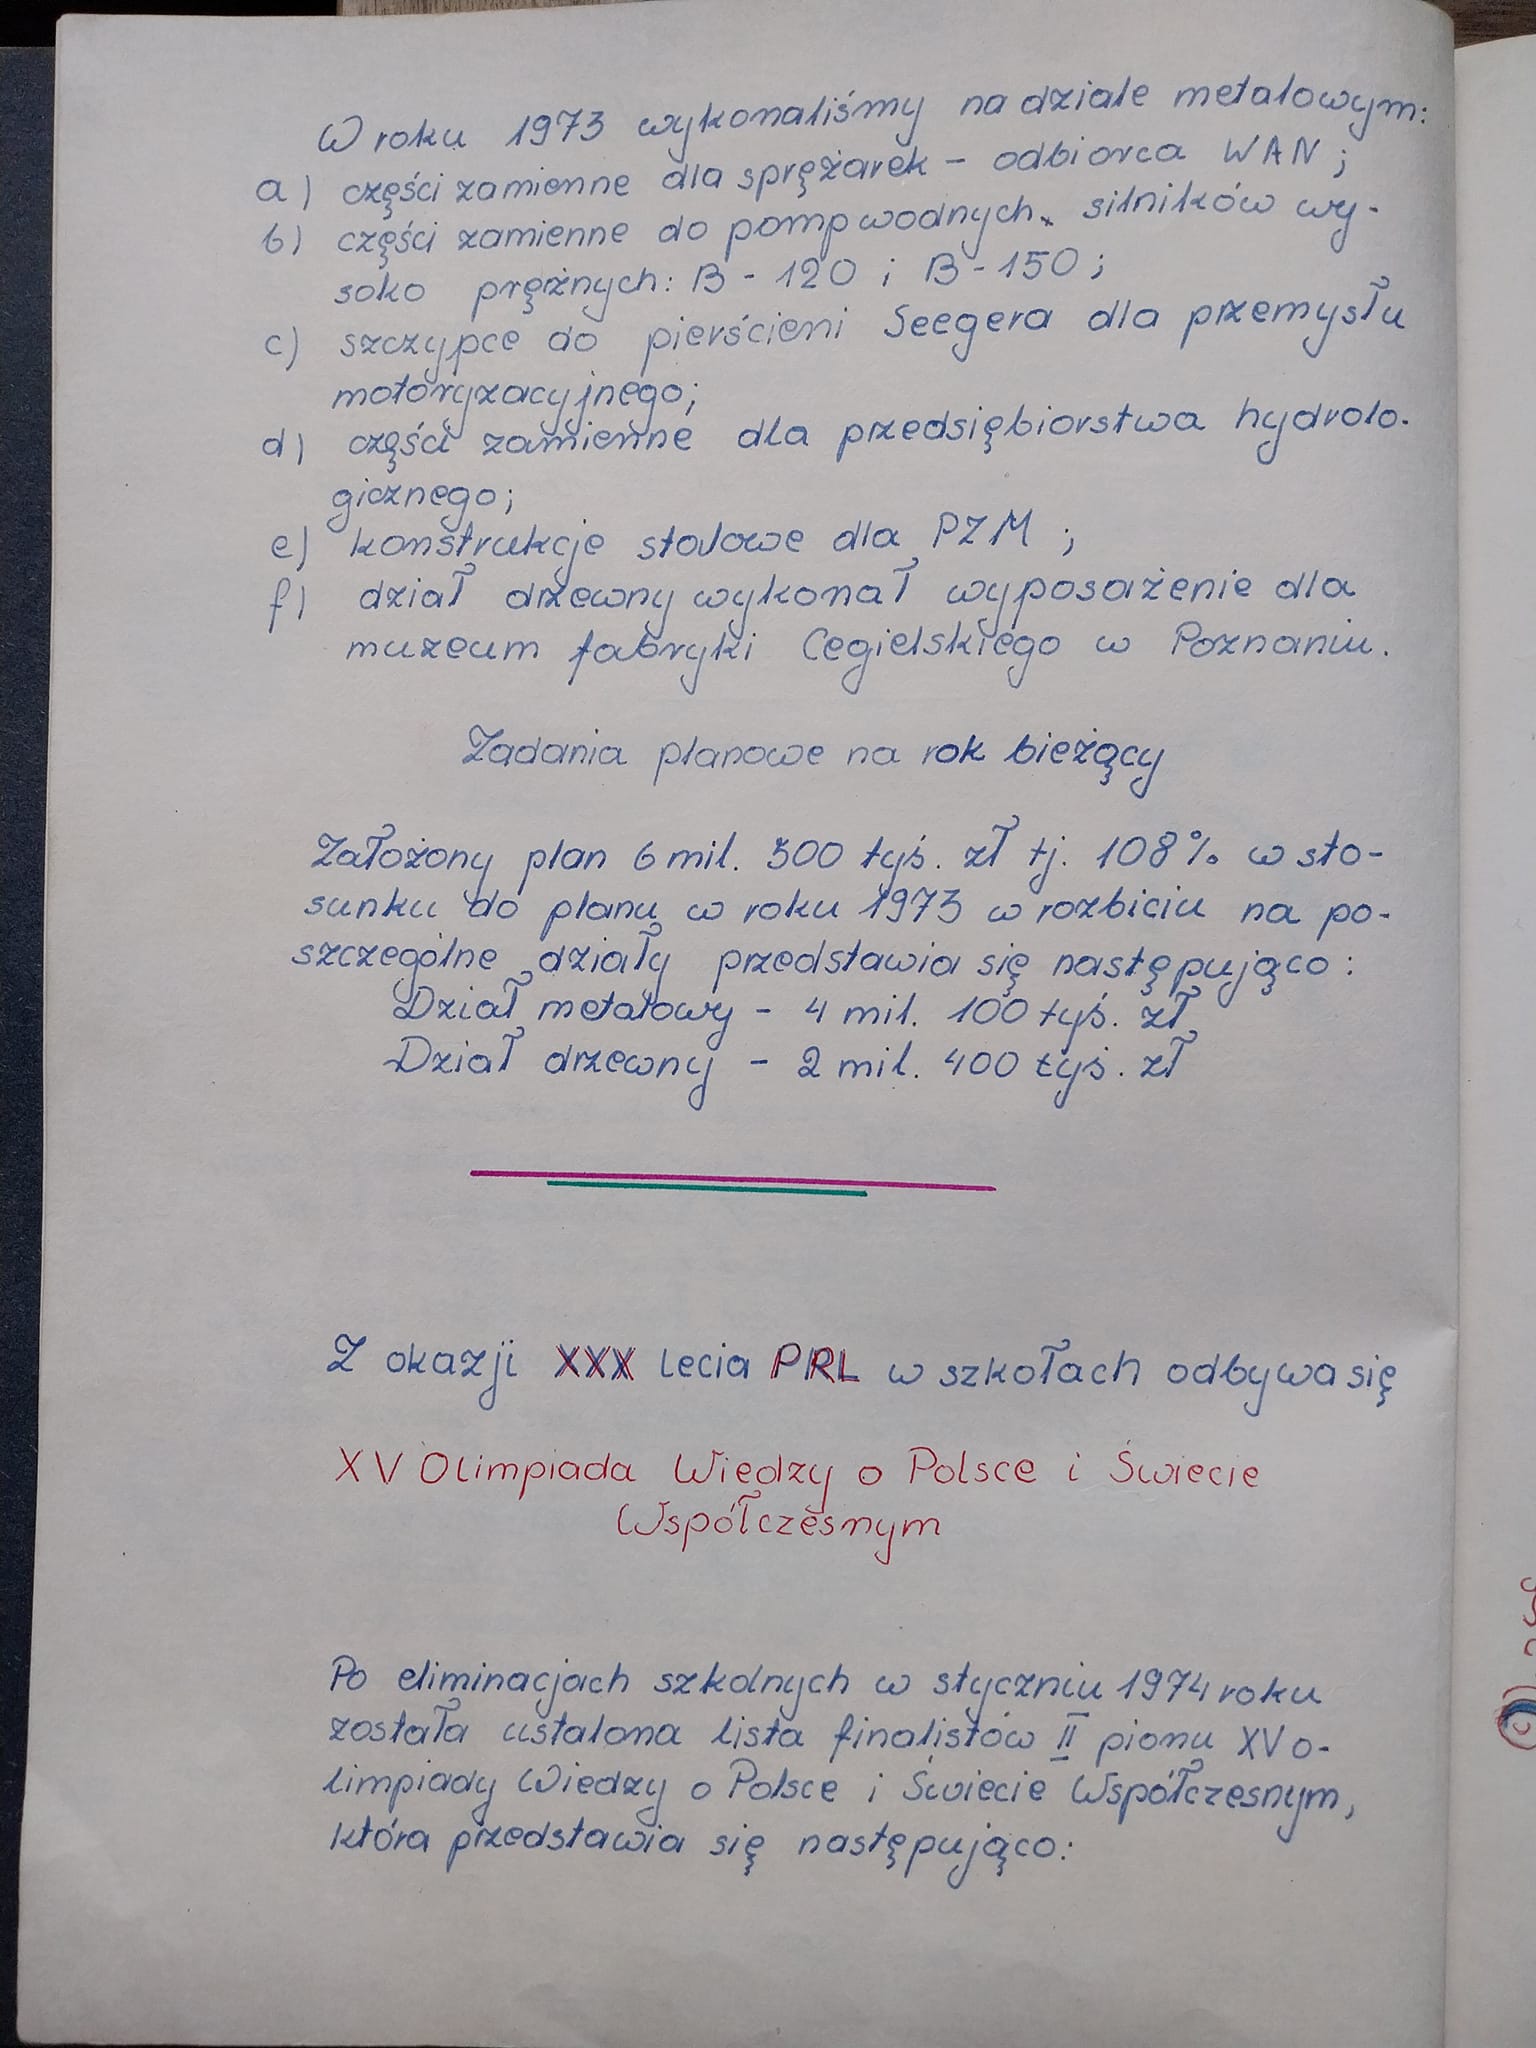 W roku 1973 wykonaliśmy na dziale metalowym:
a) części zamienne dla sprężarek – odbiorca WAN;
b) części zamienne do pomp wodnych, silników wy-
soko prężnych: B - 120 i B - 150;
c) szczypce do pierścieni Seegera dla przemysłu
motoryzacyjnego;
d) części zamienne dla przedsiębiorstwa hydrolo-
gicznego;
e) konstrukcje stalowe dla PZM;
f) dział drzewny wykonał wyposażenie dla
muzeum fabryki Cegielskiego w Poznaniu.
Zadania planowe na rok bieżący
Założony plan 6 mil. 500 tyś. zł tj. 108% w sto-
sunku do planu w roku 1973 w rozbiciu na po-
szczególne działy przedstawia się następująco:
Dział metalowy - 4 mil. 100 tyś. zł
Dział drzewny - 2 mil. 400 tyś. zł
Z okazji XXX lecia PRL w szkołach odbywa się
XV Olimpiada Wiedzy o Polsce i Świecie
Współczesnym
Po eliminacjach szkolnych w styczniu 1974 roku
została ustalona lista finalistów II pionu XV o-
limpiady Wiedzy o Polsce i Świecie Współczesnym,
która przedstawia się następująco: